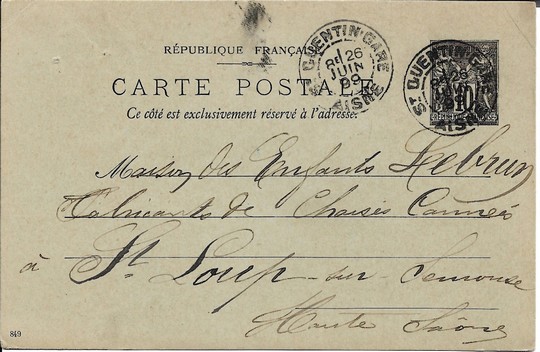 RÉPUBLIQUE FRANÇAISE
CARTE POSTALE
Ce côté est exclusivement réservé à l'adresse.
ST QUENTIN-GARE
26
JUIN
99
AISNE
ST QUENTIN-GARE
AISNE
10
Maison des Enfants Lebrun
Fabricants de Chaises Cannées
à St Loup-sur-Semouse
Haute Saône
849